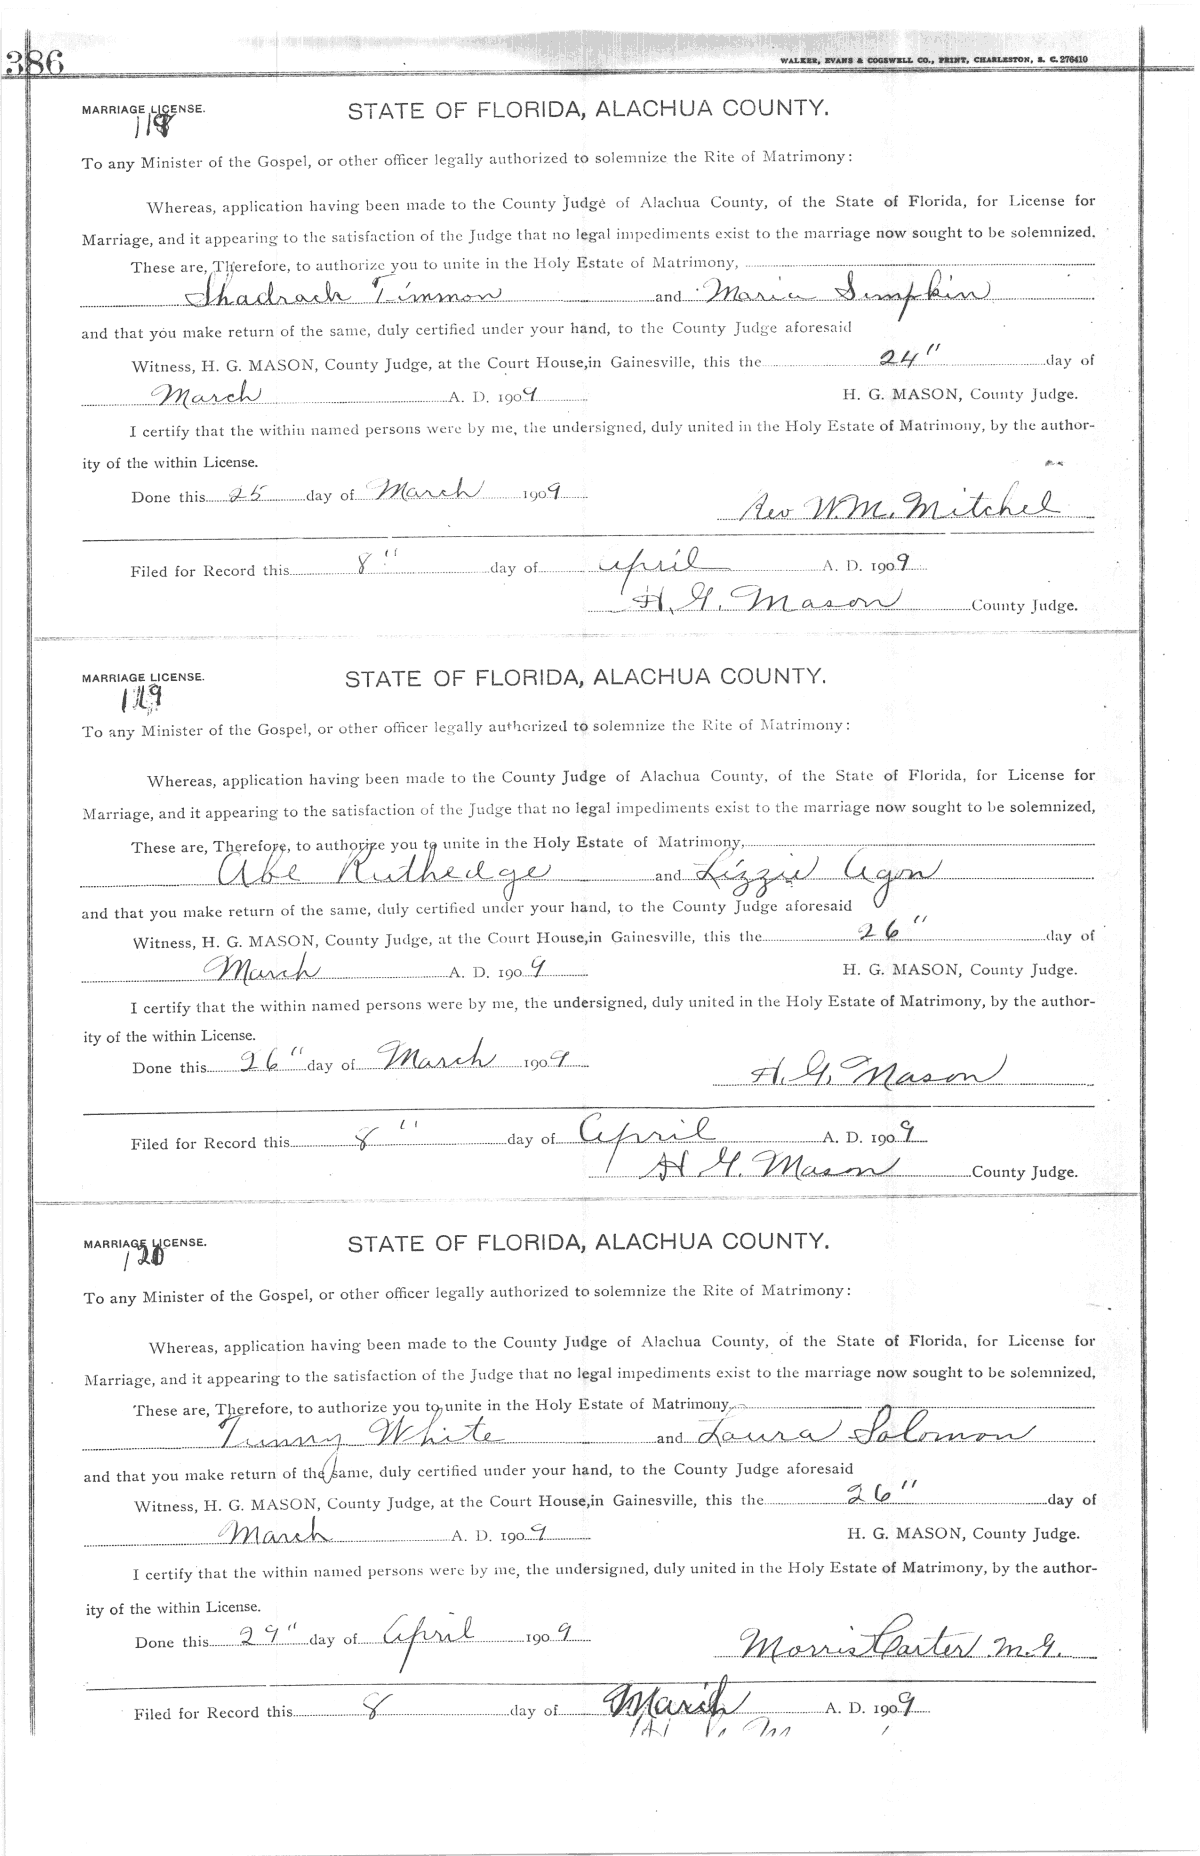 386
WALKER, EVANS & COGSWELL CO., PRINT, CHARLESTON, S. C. 276410
MARRIAGE LICENSE. STATE OF FLORIDA, ALACHUA COUNTY.
118
To any Minister of the Gospel, or other officer legally authorized to solemnize the Rite of Matrimony:
Whereas, application having been made to the County Judge of Alachua County, of the State of Florida, for License for
Marriage, and it appearing to the satisfaction of the Judge that no legal impediments exist to the marriage now sought to be solemnized.
These are, Therefore, to authorize you to unite in the Holy Estate of Matrimony,
Shadrach Timmon and Maria Simpkin
and that you make return of the same, duly certified under your hand, to the County Judge aforesaid
Witness, H. G. MASON, County Judge, at the Court House, in Gainesville, this the 24" day of
March A. D. 1909 H. G. MASON, County Judge.
I certify that the within named persons were by me, the undersigned, duly united in the Holy Estate of Matrimony, by the author-
ity of the within License.
Done this 25 day of March 1909
Rev W.M. Mitchel
Filed for Record this 8" day of April A. D. 1909
H. G. Mason County Judge.
MARRIAGE LICENSE. STATE OF FLORIDA, ALACHUA COUNTY.
119
To any Minister of the Gospel, or other officer legally authorized to solemnize the Rite of Matrimony:
Whereas, application having been made to the County Judge of Alachua County, of the State of Florida, for License for
Marriage, and it appearing to the satisfaction of the Judge that no legal impediments exist to the marriage now sought to be solemnized,
These are, Therefore, to authorize you to unite in the Holy Estate of Matrimony,
Abe Ruthedge and Lizzie Agon
and that you make return of the same, duly certified under your hand, to the County Judge aforesaid
Witness, H. G. MASON, County Judge, at the Court House, in Gainesville, this the 26" day of
March A. D. 1909 H. G. MASON, County Judge.
I certify that the within named persons were by me, the undersigned, duly united in the Holy Estate of Matrimony, by the author-
ity of the within License.
Done this 26" day of March 1909
H. G. Mason
Filed for Record this 8" day of April A. D. 1909
H G. Mason County Judge.
MARRIAGE LICENSE. STATE OF FLORIDA, ALACHUA COUNTY.
120
To any Minister of the Gospel, or other officer legally authorized to solemnize the Rite of Matrimony:
Whereas, application having been made to the County Judge of Alachua County, of the State of Florida, for License for
Marriage, and it appearing to the satisfaction of the Judge that no legal impediments exist to the marriage now sought to be solemnized,
These are, Therefore, to authorize you to unite in the Holy Estate of Matrimony,
Tunny White and Laura Solomon
and that you make return of the same, duly certified under your hand, to the County Judge aforesaid
Witness, H. G. MASON, County Judge, at the Court House, in Gainesville, this the 26" day of
March A. D. 1909 H. G. MASON, County Judge.
I certify that the within named persons were by me, the undersigned, duly united in the Holy Estate of Matrimony, by the author-
ity of the within License.
Done this 29" day of April 1909
Morris Carter M.G.
Filed for Record this 8 day of March A. D. 1909